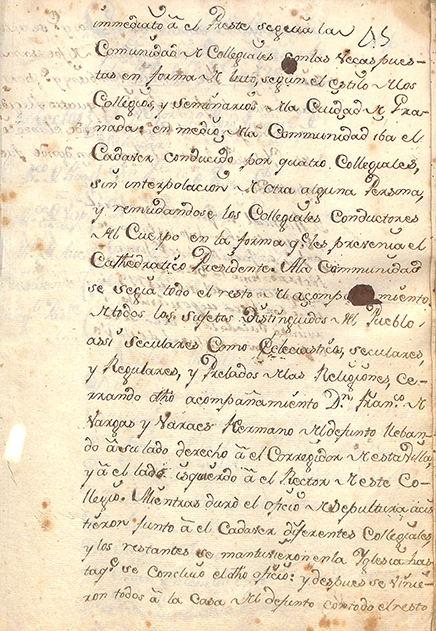 immediato â el Preste seguia la 45
Comunidad de Collegiales con las vecas pues-
tas en forma de luto, segun el estilo de los
Collegios, y seminarios de la Ciudad de Gra-
nada: en medio de la Communidad iba el
Cadaver, conducido por quatro Collegiales,
sin interpolacion de otra alguna Persona,
y remudandose los Collegiales Conductores
del Cuerpo en la forma q.e les presenia el
Cathedratico Presidente. A la Communidad
se seguia todo el resto del acompañamiento
de todos los sujetos distinguidos del Pueblo
assi seculares como Eclesiasticos, seculares
y Regulares, y Prelados de las Religiones, ce-
rrando dho acompañamiento D.n Fran.co de
Vargas y Varaes Hermano del defunto lleban-
do â su lado derecho â el Corregidor de esta Villa,
y â el lado isquierdo â el Rector de este Co-
llegio. Mientras duró el oficio de sepultura asis-
tieron junto â el Cadaver diferentes Collegiales
y los restantes se mantuvieron en la Yglesia has-
ta q.e se concluio el dho oficio: y despues se vinie-
ron todos â la Casa del defunto con todo el resto